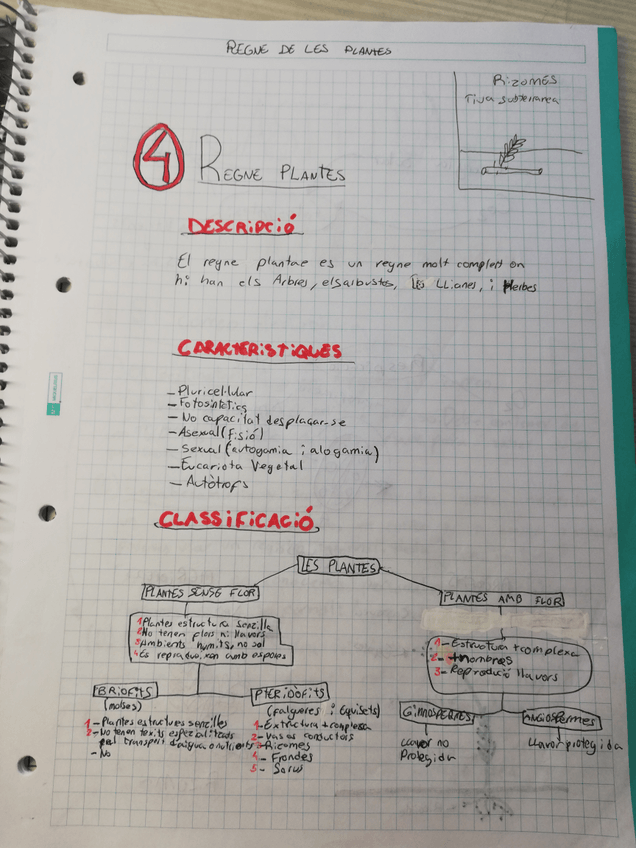 REGNE DE LES PLANTES
Rizomes
Tija subterranea
4 REGNE PLANTES
DESCRIPCIÓ
El regne plantae es un regne molt complert on
hi han els Arbres, els arbustes, les LLianes, i Herbes
CARACTERISTIQUES
- Pluricel·lular
- Fotosintetics
- No capacitat desplaçar-se
- Asexual (Fisió)
- Sexual (autogamia i alogamia)
- Eucariota Vegetal
- Autòtrofs
CLASSIFICACIÓ
LES PLANTES
PLANTES SENSE FLOR
PLANTES AMB FLOR
1 Plantes estructura senzilla
2 No tenen flors ni llavors
3 Ambients humits, no sol
4 Es reprodueixen amb espores
1 - Estructura + complexa
2 - + nombroses
3 - Reproducció llavors
BRIOFITS
(molses)
1 - Plantes estructures senzilles
2 - No tenen teixits especialitzats
pel transport d'aigua o nutrients
- No
PTERIDÒFITS
(falgueres i Equisets)
1 - Extructura + complexa
2 - Vasos conductors
3 - Rizomes
4 - Frondes
5 - Sorus
GIMNOSPERMES
Llavor no
Protegida
ANGIOSPERMES
Llavor protegida